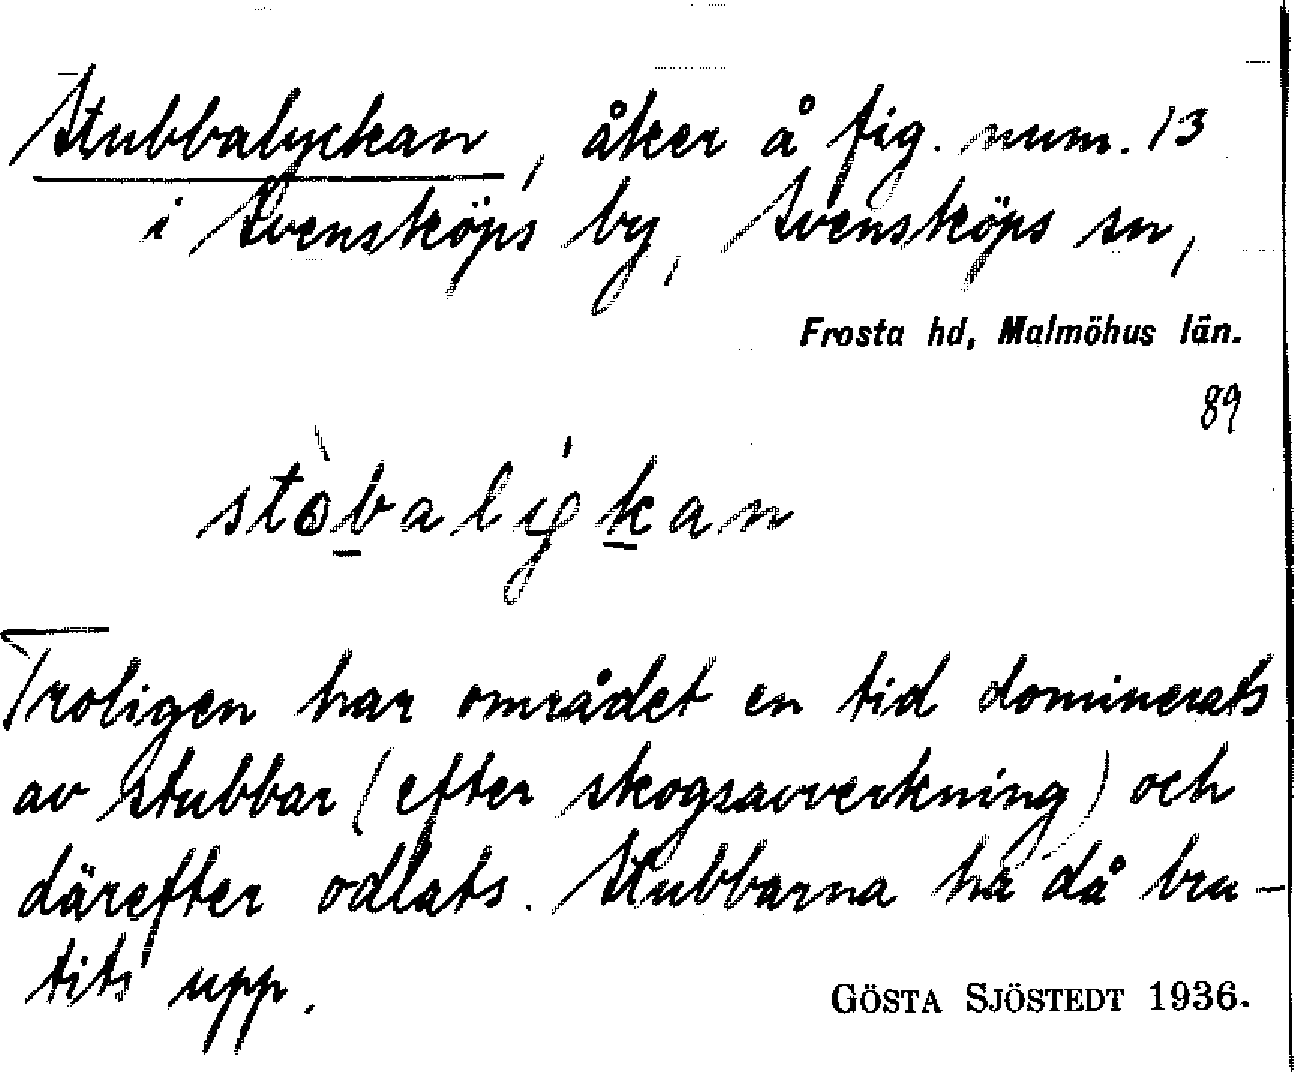 Stubbalyckan, åker å fig. num. 13
i Svensköps by, Svensköps sn,
Frosta hd, Malmöhus län.
89
Troligen har området en tid dominerats
av stubbar (efter skogsavverkning) och
därefter odlats. Stubbarna ha då bru-
tits upp.
GÖSTA SJÖSTEDT 1936.